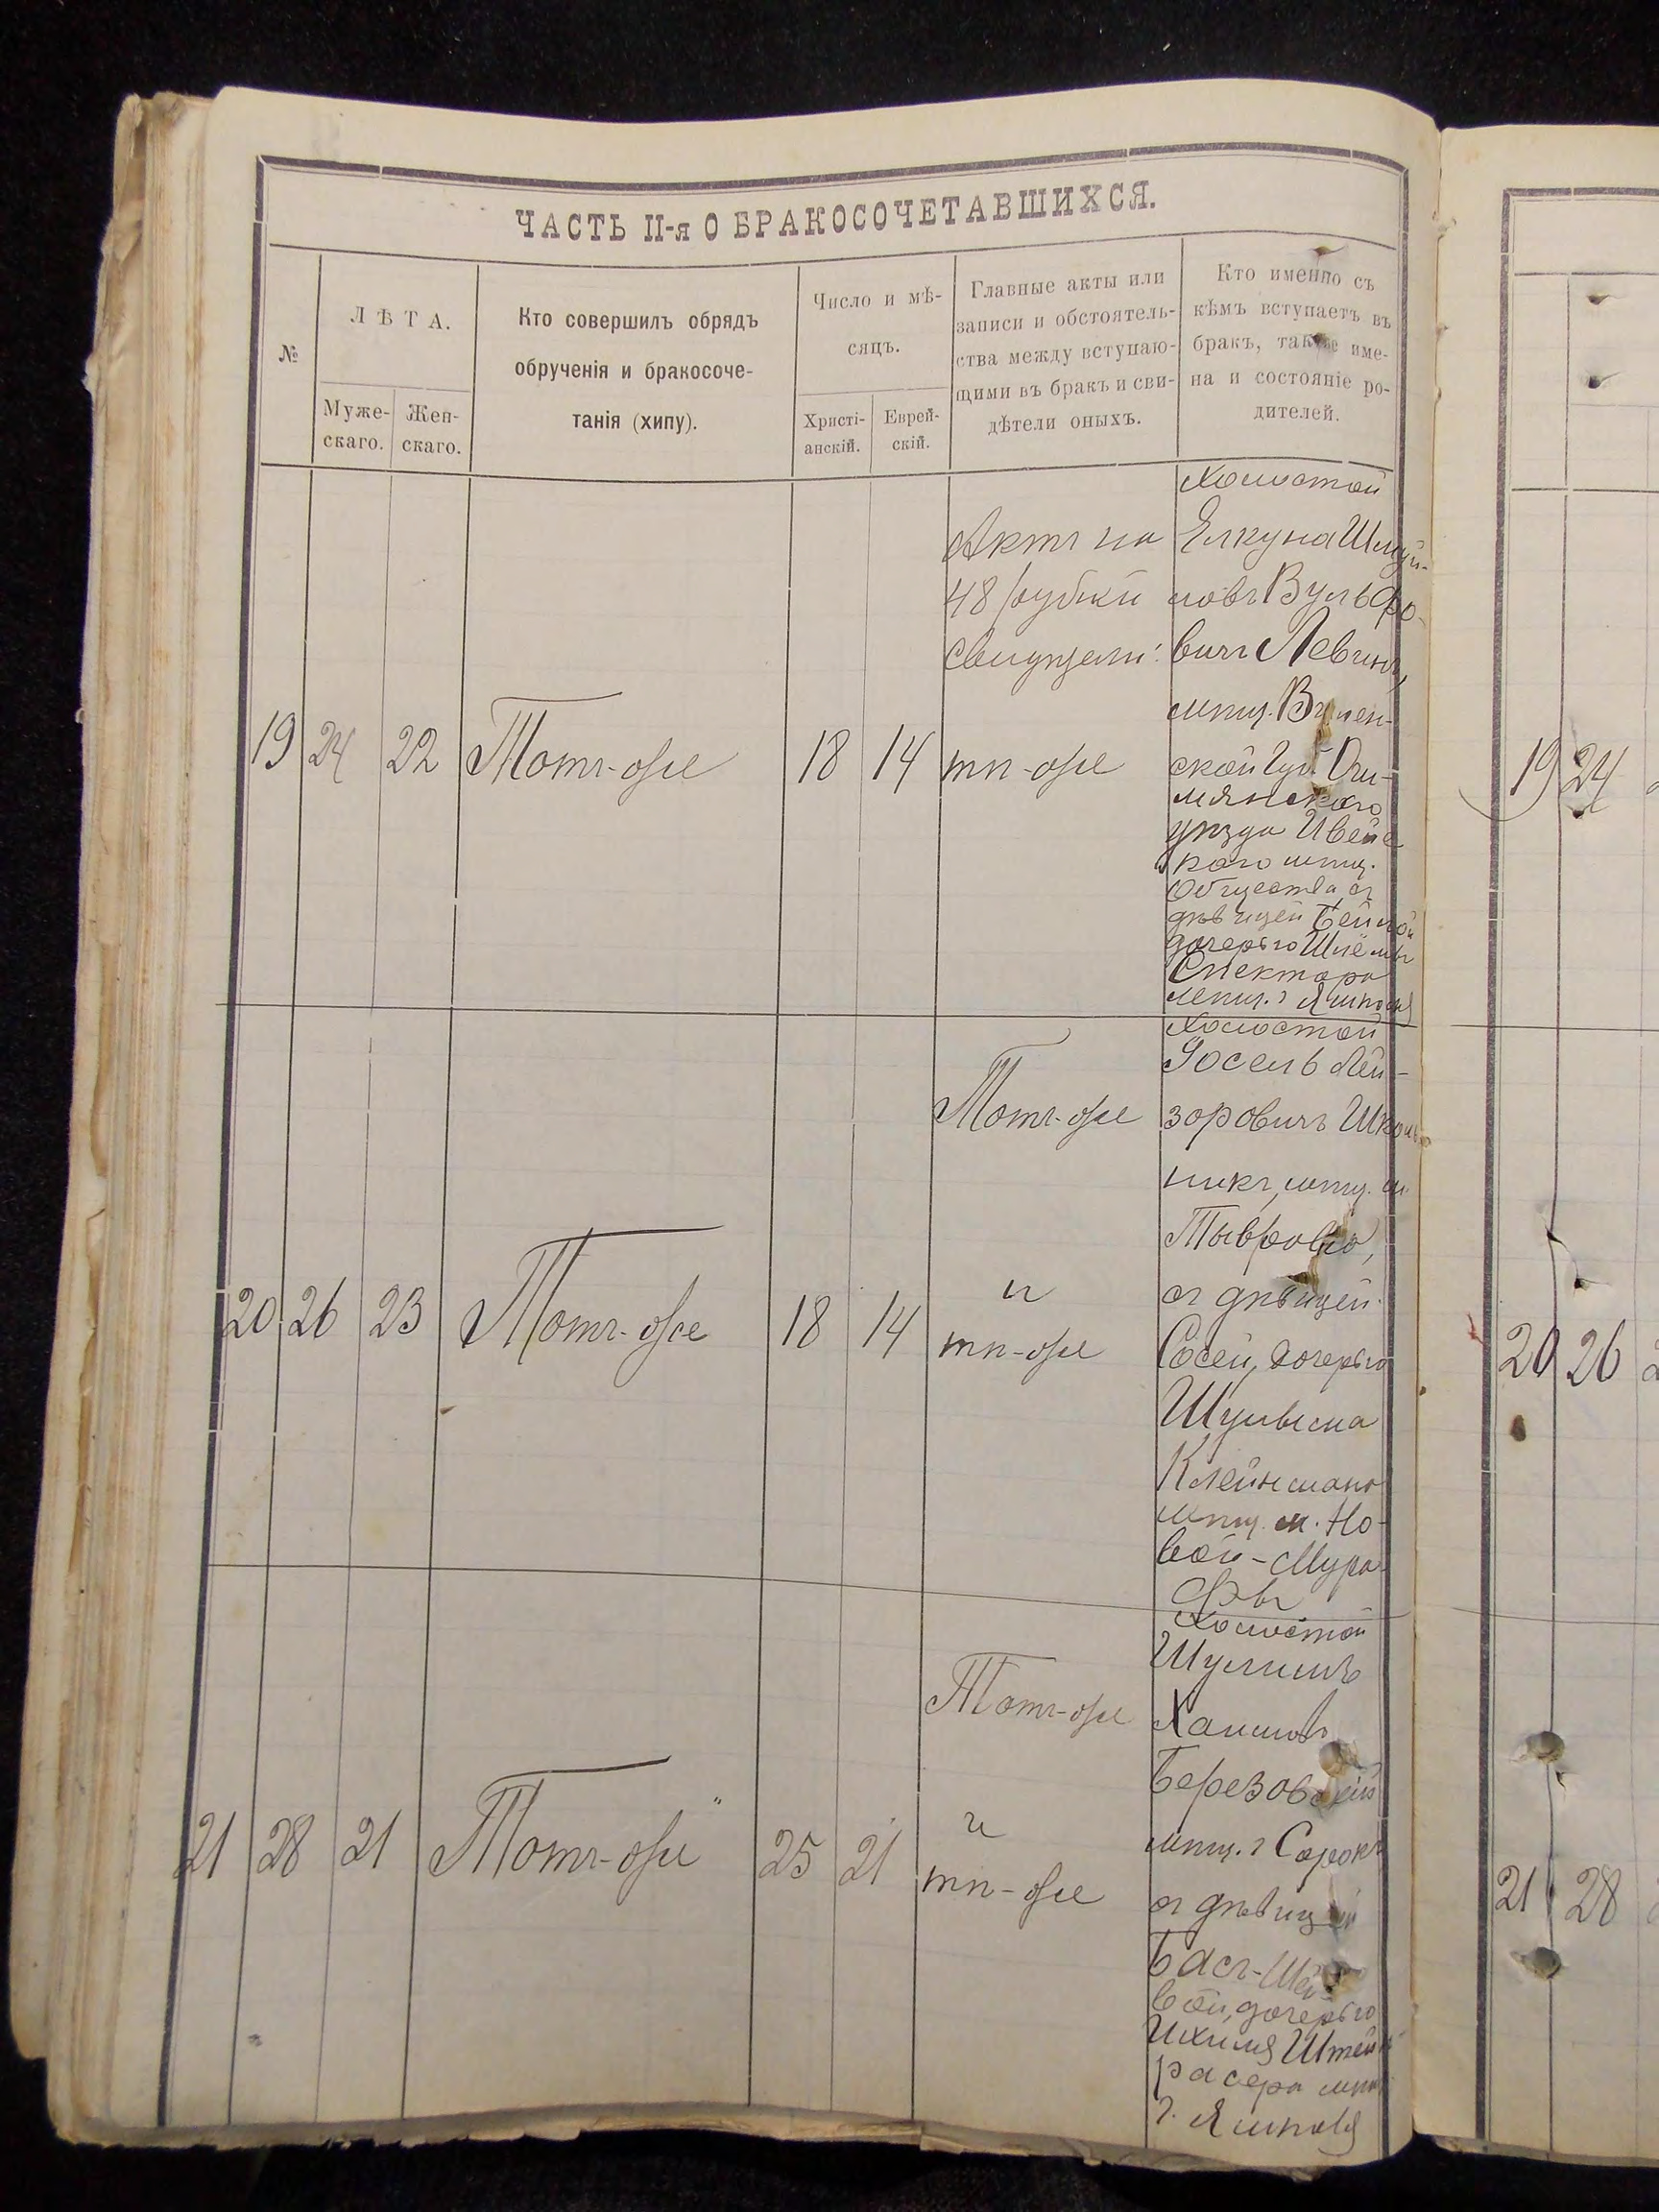 ЧАСТЬ II-я О БРАКОСОЧЕТАВШИХСЯ.
№
ЛѢТА.
Муже-
скаго.
Жен-
скаго.
Кто совершилъ обрядъ
обрученія и бракосоче-
танія (хипу).
Число и мѣ-
сяцъ.
Христі-
анскій.
Еврей-
скій.
Главные акты или
записи и обстоятель-
ства между вступаю-
щими въ бракъ и сви-
дѣтели оныхъ.
Кто именно съ
кѣмъ вступаетъ въ
бракъ, также име-
на и состояніе ро-
дителей.
19
24
22
Тотъ-же
18
14
Актъ на
48 рублей
Свидѣтели:
тѣ-же
Холостой
Елкуна Шмуй-
ловъ Вульфо-
вичъ Левинъ,
мѣщ. Вилен-
ской Губ. Ош-
мянскаго
уѣзда Ивейс
каго мѣщ.
Общества съ
дѣвицей Бейлой
дочерью Шлёмы
Спектора
мѣщ. г. Ямполя
20
26
23
Тотъ-же
18
14
Тотъ-же
и
тѣ-же
Холостой
Іосель Лей-
зоровичъ Школь-
никъ, мѣщ. м.
Тыврова,
съ дѣвицей
Сосей, дочерью
Шульима
Клейнмана
мѣщ. м. Но-
вой-Мура-
фы
21
28
21
Тотъ-же
25
21
Тотъ-же
и
тѣ-же
Холостой
Шулимъ
Хаимовъ
Березовскій
мѣщ. г. Сорокъ
съ дѣвицей
Бася-Шей
вой, дочерью
Ихиля Штейн
расера мѣщ
г. Ямполя
19
24
20
26
21
28